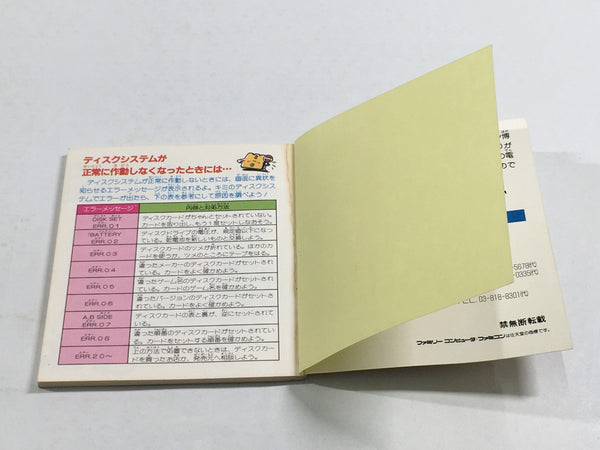 ディスクシステムが
正常に作動しなくなったときには…
ディスクシステムが正常に作動しないときには、画面に異状を
知らせるエラーメッセージが表示されるよ。キミのディスクシス
テムでエラーが出たら、下の表を参考にして原因を調べよう！
エラーメッセージ 内容と対処方法
DISK SET
ERR.01
ディスクカードがちゃんとセットされていない。
カードを取り出し、もう1度セットしなおそう。
BATTERY
ERR.02
ディスクドライブの電圧が、規定値以下になっ
ている。乾電池を新しいものと交換しよう。
ERR.03
ディスクカードのツメが折れている。ほかのカー
ドを使うか、ツメのところにテープをはる。
ERR.04
違ったメーカーのディスクカードがセットされ
ている。カードをよく確かめよう。
ERR.05
違ったゲーム名のディスクカードがセットされ
ている。カードのゲーム名を確かめよう。
ERR.06
違ったバージョンのディスクカードがセットさ
れている。カードをよく確かめよう。
A,B SIDE
ERR.07
ディスクカードの表と裏が、逆にセットされて
いる。
ERR.08
違った順番のディスクカードがセットされてい
る。カードをセットする順番を確かめよう。
ERR.20〜
上の方法で処置できないときは、ディスクカー
ドを買ったお店か、発売元へ相談しよう。
博
が
の電
ので
-5678㈹
-0335㈹
TEL.03-818-8301㈹
禁無断転載
ファミリーコンピュータ・ファミコンは任天堂の商標です。